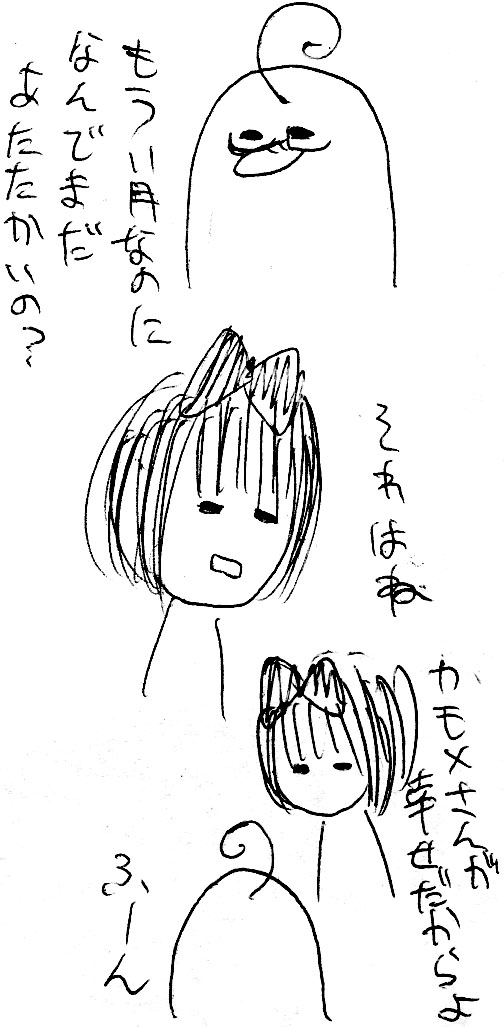 もういい月なのに
なんでまだ
あたたかいの?
それはね
カモメさんが
幸せだからよ
ふーん